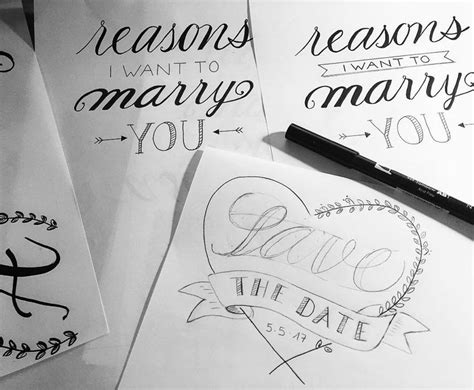 reasons
I WANT TO
marry
YOU
reasons
I WANT TO
marry
YOU
Save
THE DATE
5.5.17